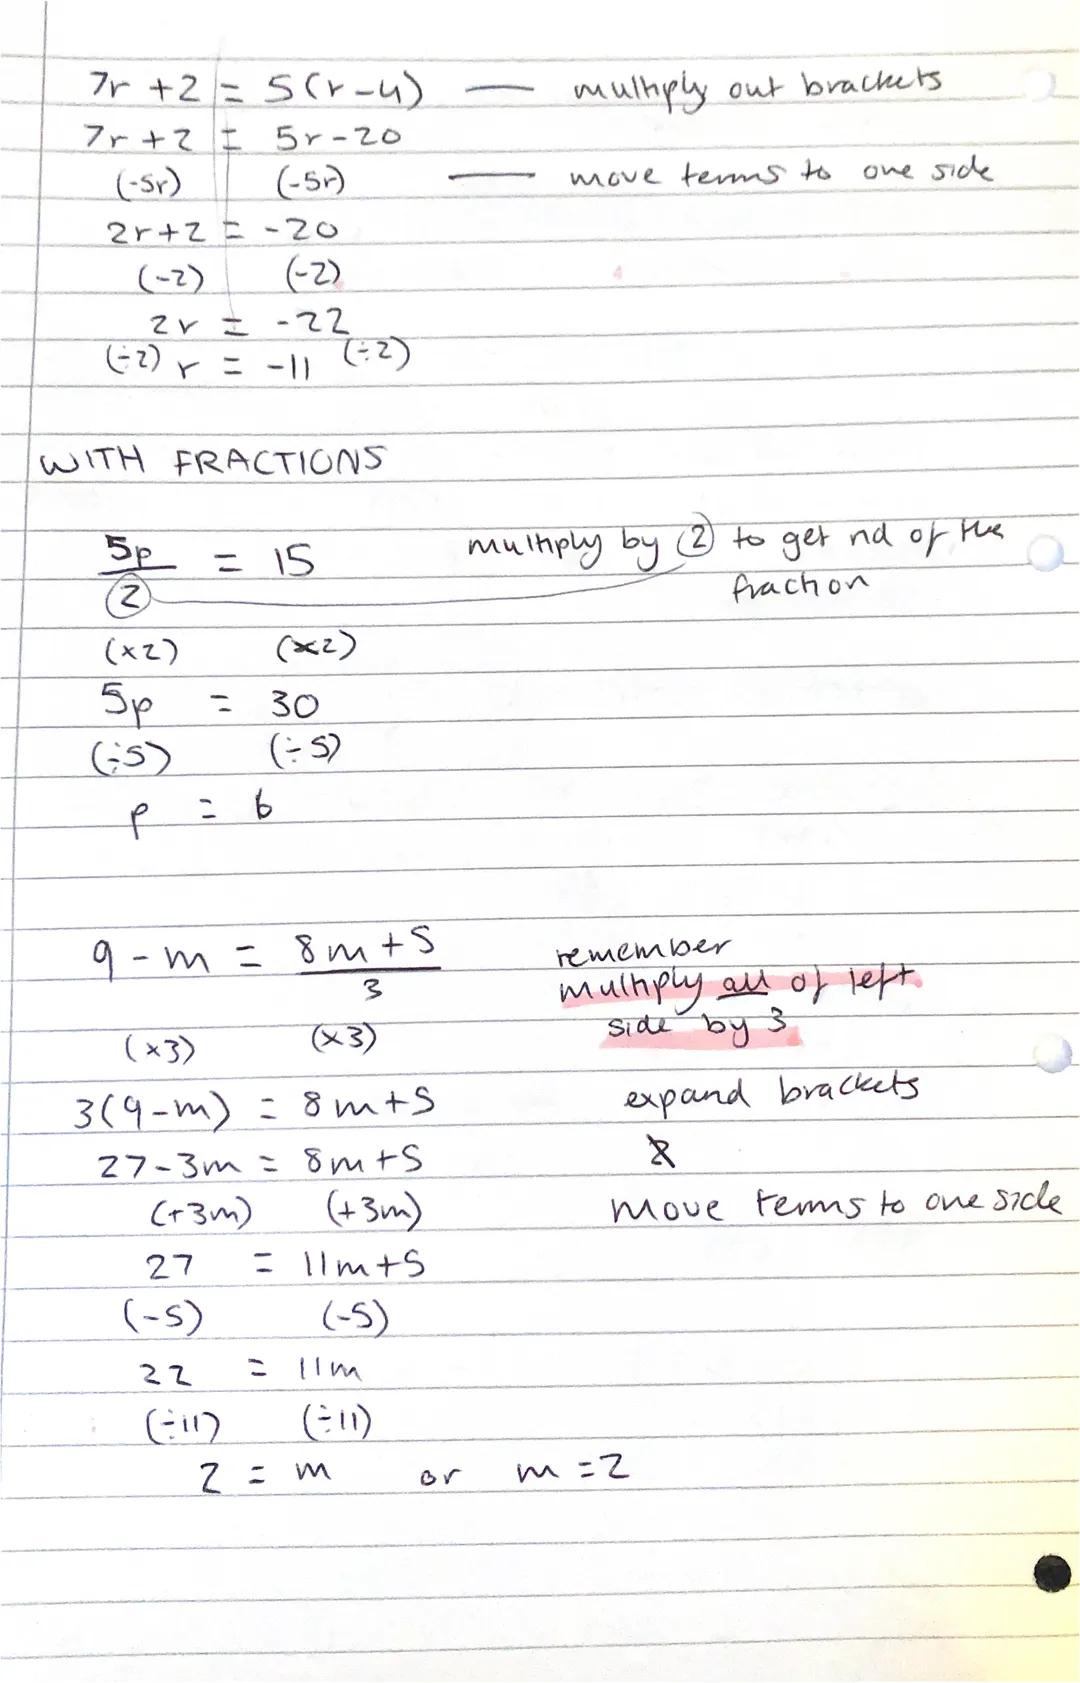 7r + 2 = 5(r-4) — multiply out brackets
7r + 2 = 5r - 20
(-5r) (-5r) — move terms to one side
2r + 2 = -20
(-2) (-2)
2r = -22
(÷2) r = -11 (÷2)
WITH FRACTIONS
5p/2 = 15 multiply by 2 to get rid of the
fraction
(×2) (×2)
5p = 30
(÷5) (÷5)
p = 6
9 - m = 8m + 5/3 remember
multiply all of left
side by 3
(×3) (×3)
3(9-m) = 8m + 5 expand brackets
27 - 3m = 8m + 5
(+3m) (+3m) move terms to one side
27 = 11m + 5
(-5) (-5)
22 = 11m
(÷11) (÷11)
2 = m or m = 2